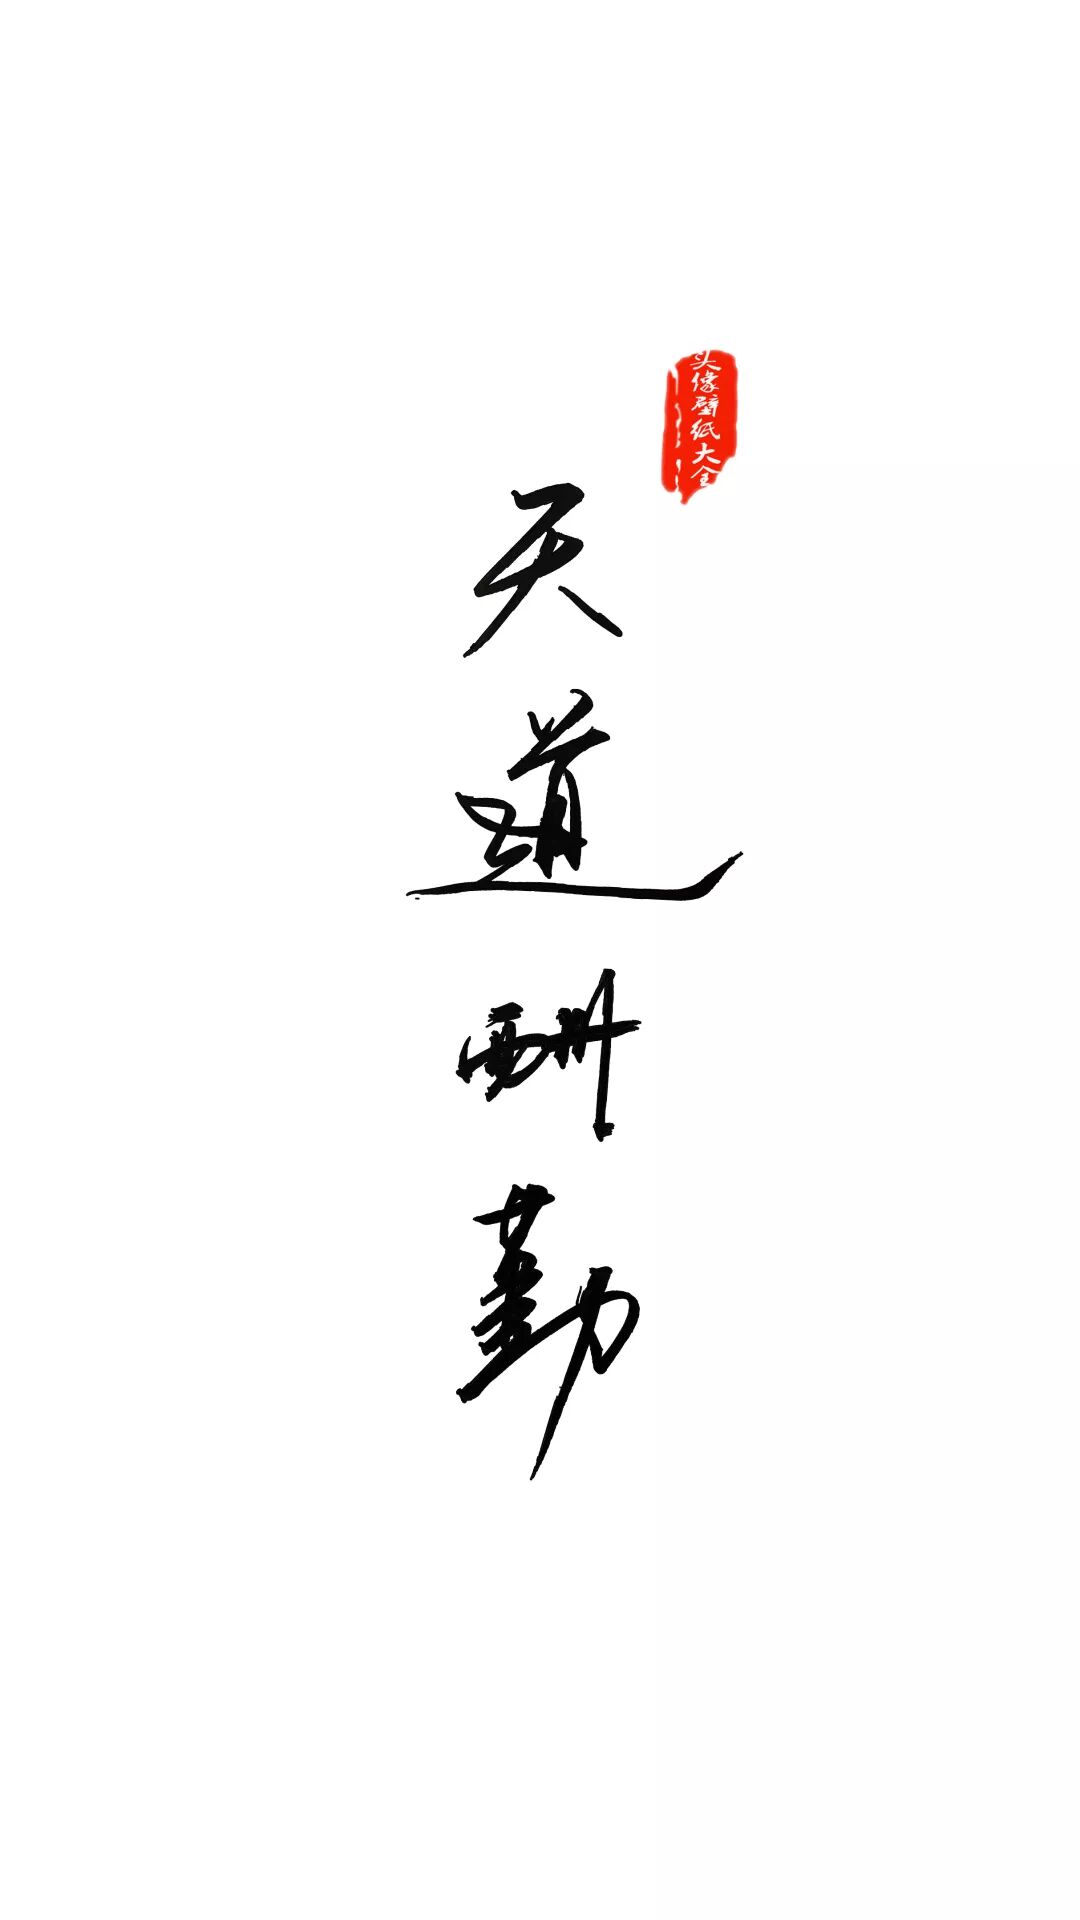 头像壁纸大全
天道酬勤